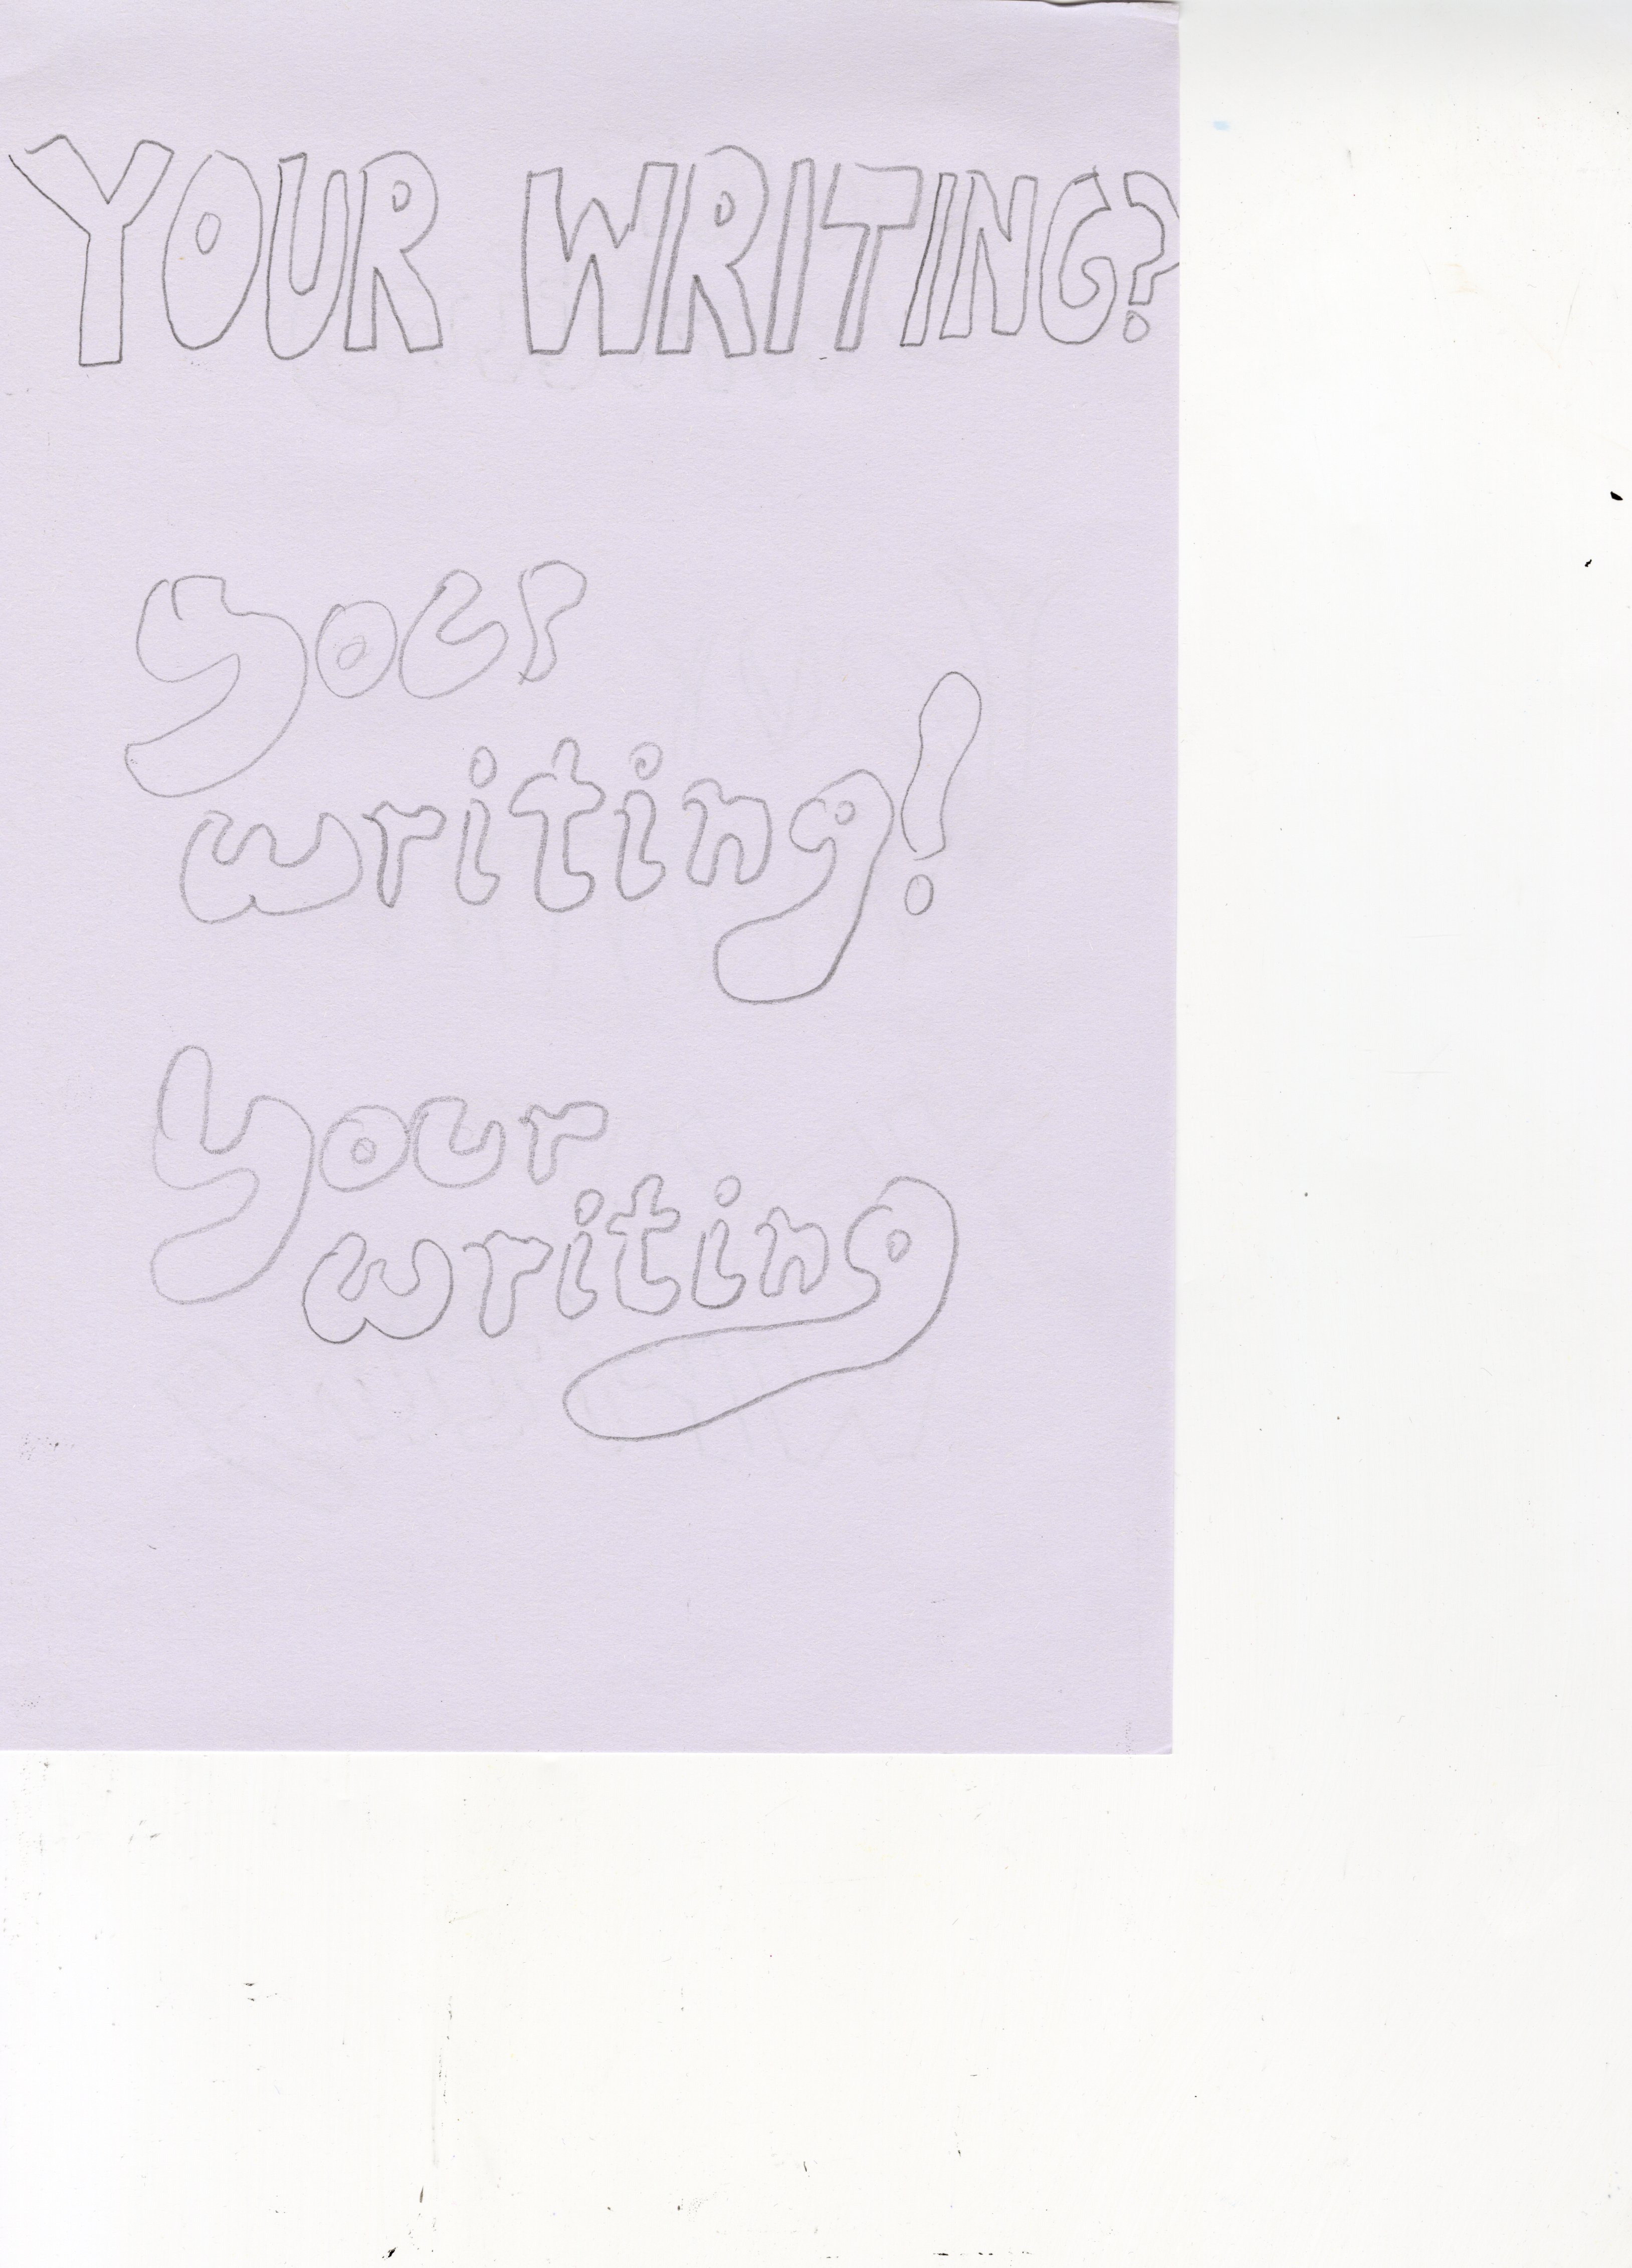 YOUR WRITING?
your
writing!
your
writing